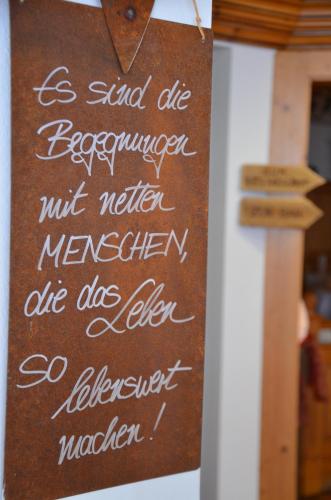 Es sind die
Begegnungen
mit netten
MENSCHEN,
die das Leben
so lebenswert
machen!